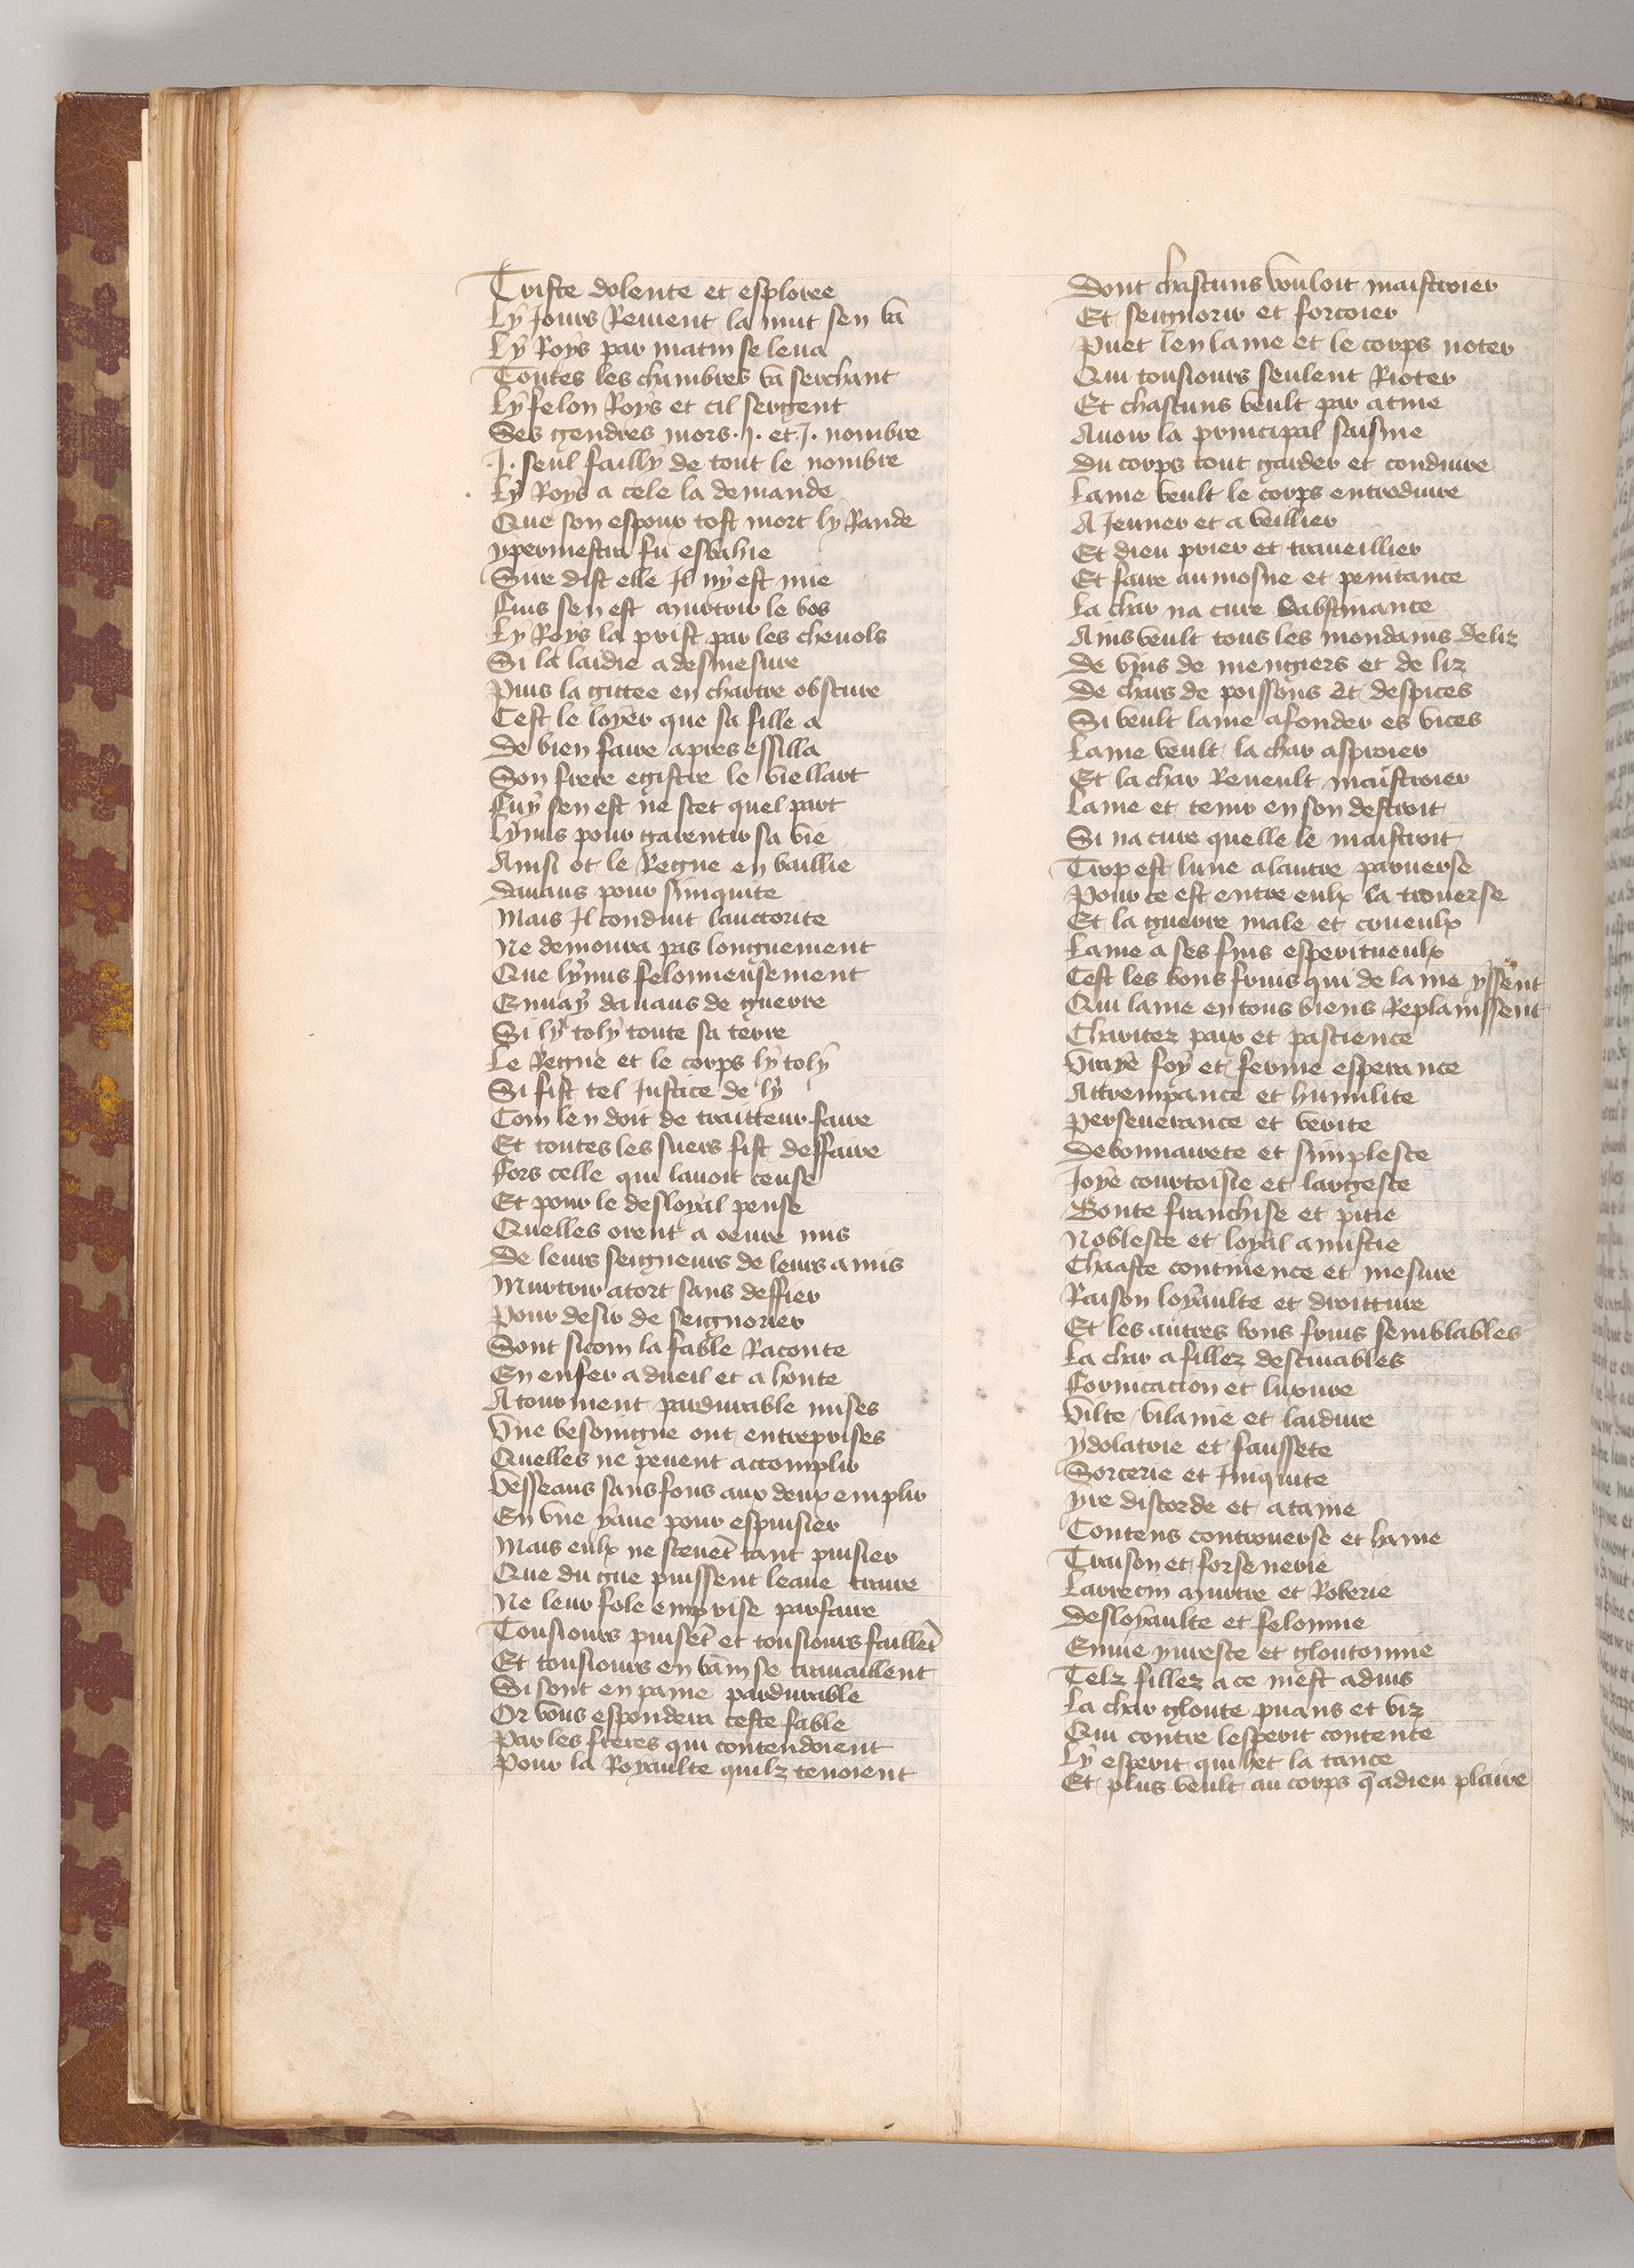 Triste dolente et esploree
Ly Jours Reuient la nuit sen va
Ly Roys par matin se leua
Toutes les chambres va serchant
Ly felon Roys et cil sergent
Ses gendres mors .J. et .J. nombre
.J. seul failly de tout le nombre
Ly Roys a cele la demande
Que son espour tost mort ly Rande
ypermestra fu esbahie
Sire dist elle Jl ny est mie
Fuis sen est murtrir le vos
Ly Roys la prist par les cheuols
Si la laidie a desmesure
Puis la gittee en chartre obscure
Cest le loyer que sa fille a
de bien faire apres essilla
Son frere egistre le viellart
Fuy sen est ne scet quel part
Lynus pour garentir sa vie
Ainsi ot le Regne en baillie
danaus pour siniquite
Mais Jl conduit lauctorite
Ne demoura pas longuement
Que lynus felonneusement
Enuay danaus de guerre
Si ly toly toute sa terre
Le Regne et le corps ly toly
Si fist tel Justice de ly
Com len doit de traitteur faire
Et toutes les suers fist deffaire
Fors celle qui lauoit tense
Et pour le desloyal pense
Quelles orent a oeuure mis
De leurs seigneurs de leurs amis
Murtrir a tort sans deffier
Pour desir de seignorier
Sont sicom la fable Raconte
En enfer a dueil et a honte
A tourment pardurable mises
Vne besoingne ont entreprises
Quelles ne peuent accomplir
Vesseaus sans fons aux deux emplir
En vne yaue pour espuisier
Mais eulx ne sceuēt tant puisier
Que du gue puissent leaue traire
Ne leur fole emprise parfaire
Tousiours puisēt et tousiours faillēt
Et tousiours en vain se trauaillent
Si sont en paine pardurable
Or vous espondera ceste fable
Par les freres qui contendoient
Pour la Royaulte quilz tenoient
Dont chascuns vouloit maistroier
Et seignorir et forcoier
Puet len lame et le corps noter
Qui tousiours seulent Rioter
Et chascuns veult par atine
Auoir la principal saisine
du corps tout garder et conduire
Lame veult le corps entroduire
A Jeuner et a veillier
Et dieu prier et traueillier
Et faire aumosne et penitance
La char na cure dabstinance
Ains veult tous les mondains deliz
de vins de mengiers et de liz
de chars de poissons et despices
Si veult lame afonder es vices
Lame veult la char asproier
Et la char Reueult maistroier
Lame et tenir en son destroit
Si na cure quelle le maistroit
Trop est lune a lautre paruerse
Pour ce est entre eulx la trouerse
Et la guerre male et crueulx
Lame a ses fius esperitueulx
Cest les bons fruis qui de lame yssent
Qui lame en tous biens Replanissent
Charitez paix et pascience
Vraye foy et ferme esperance
Attrempance et humilite
Perseuerance et verite
debonnairete et simplesce
Joye courtoisie et largesce
Bonte franchise et pitie
Noblesce et loyal amistie
Chaaste continence et mesure
Raison loyaulte et droitture
Et les autres bons fruis semblables
La char a fillez desciuables
Fornicacion et luxure
Vilte vilanie et laidure
ydolatrie et faussete
Sorcerie et Jniquite
yre discorde et ataine
Contens controuerse et haine
Traison et forsenerie
Larrecin murtre et Roberie
desloyaulte et felonnie
Enuie yuresce et gloutonnie
Telz fillez a ce mest aduis
La char gloute puans et viz
Qui contre lesperit contente
Ly esperit qui het la tance
Et plus veult au corps q̄ adieu plaire